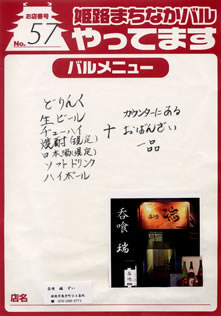 お店番号
No. 57
姫路まちなかバル
やってます
バルメニュー
どりんく
生ビール
チューハイ
焼酎(規定)
日本酒(規定)
ソフトドリンク
ハイボール
+
カウンターにある
おばんざい
一品
呑喰 瑞
店名